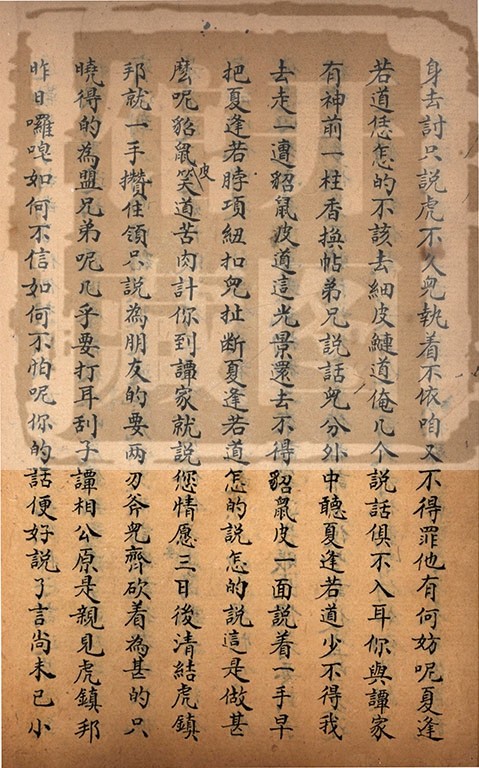 身去討只說虎不久兠執着不依咱又不得罪他有何妨呢夏逢
若道恁怎的不該去細皮鰱道俺几个說話俱不入耳你與譚家
有神前一柱香換帖弟兄說話兠分外中聽夏逢若道少不得我
去走一遭貂鼠皮道這光景還去不得貂鼠皮一面說着一手早
把夏逢若脖項紐扣兠扯斷夏逢若道怎的說怎的說這是做甚
麽呢貂鼠皮笑道苦肉計你到譚家就說您情愿三日後清結虎鎮
邦就一手攢住領只說為朋友的要两刃斧兠齊砍着為甚的只
曉得的為盟兄弟呢几乎要打耳刮子譚相公原是親見虎鎮邦
昨日囉唣如何不信如何不怕呢你的話便好說了言尚未已小